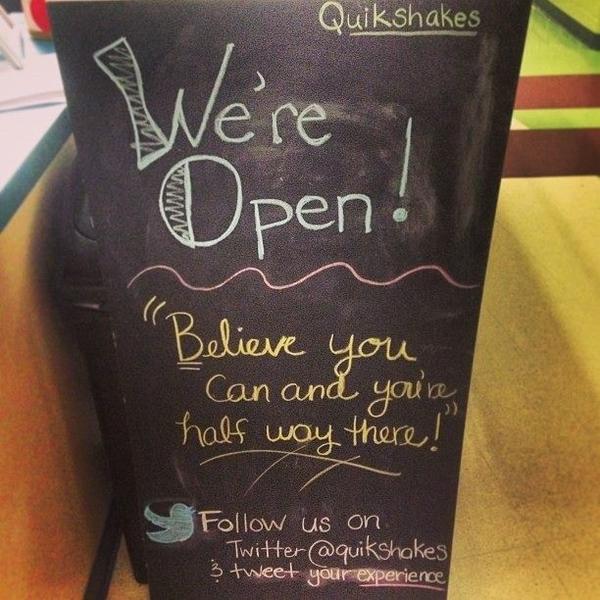 Quikshakes
We're
Open!
"Believe you
Can and you're
half way there!"
Follow us on
Twitter @quikshakes
& tweet your experience